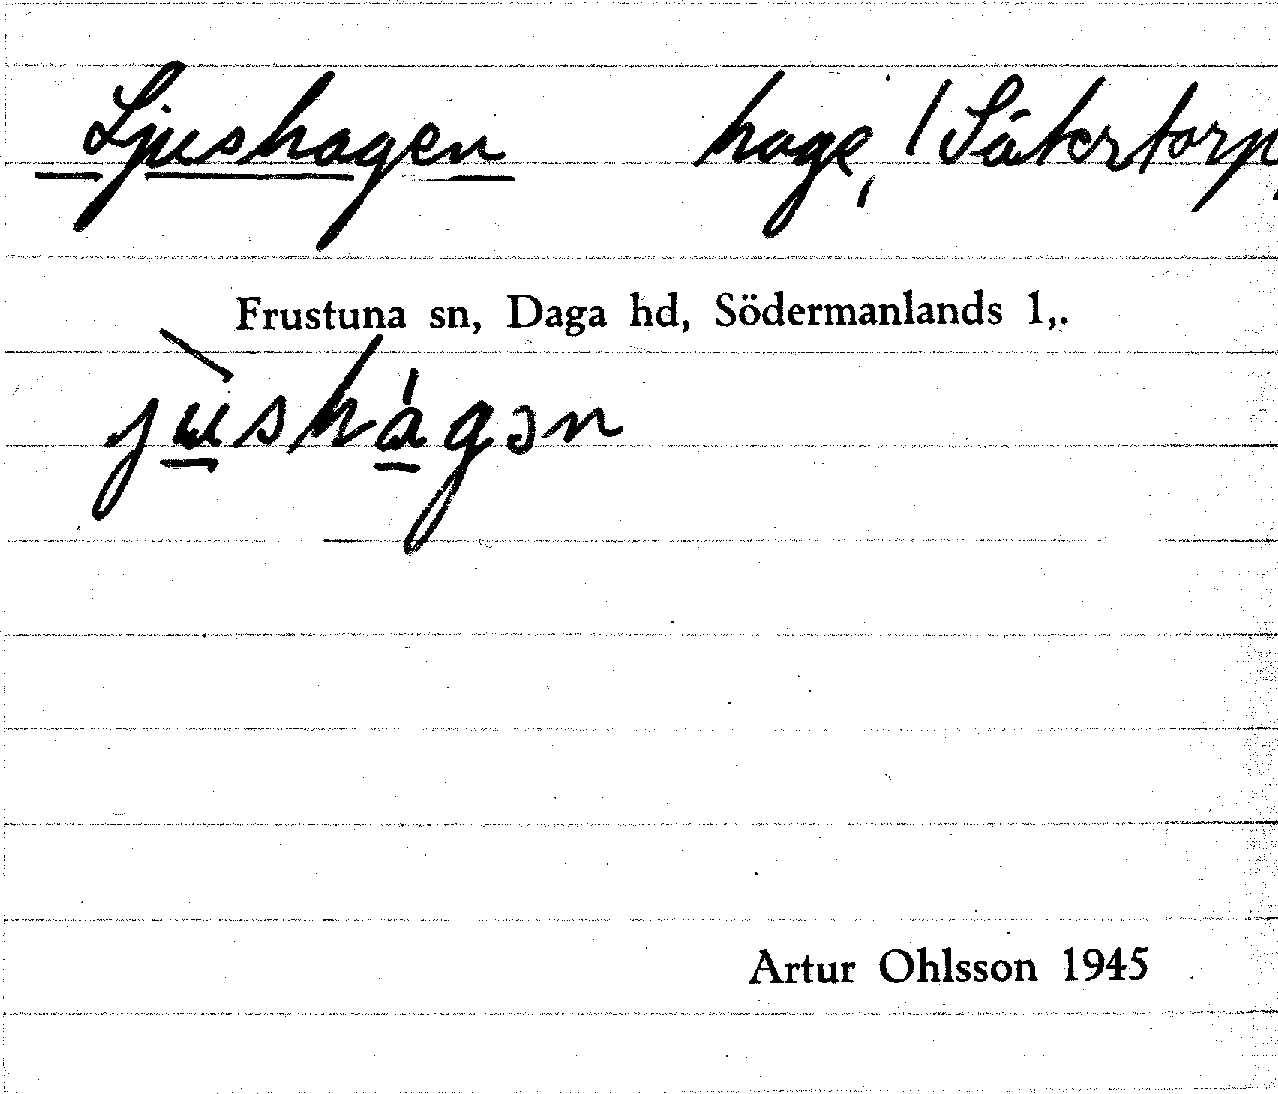 Ljushagen hage, / Sätertorp,
Frustuna sn, Daga hd, Södermanlands l,.
jùshágən
Artur Ohlsson 1945